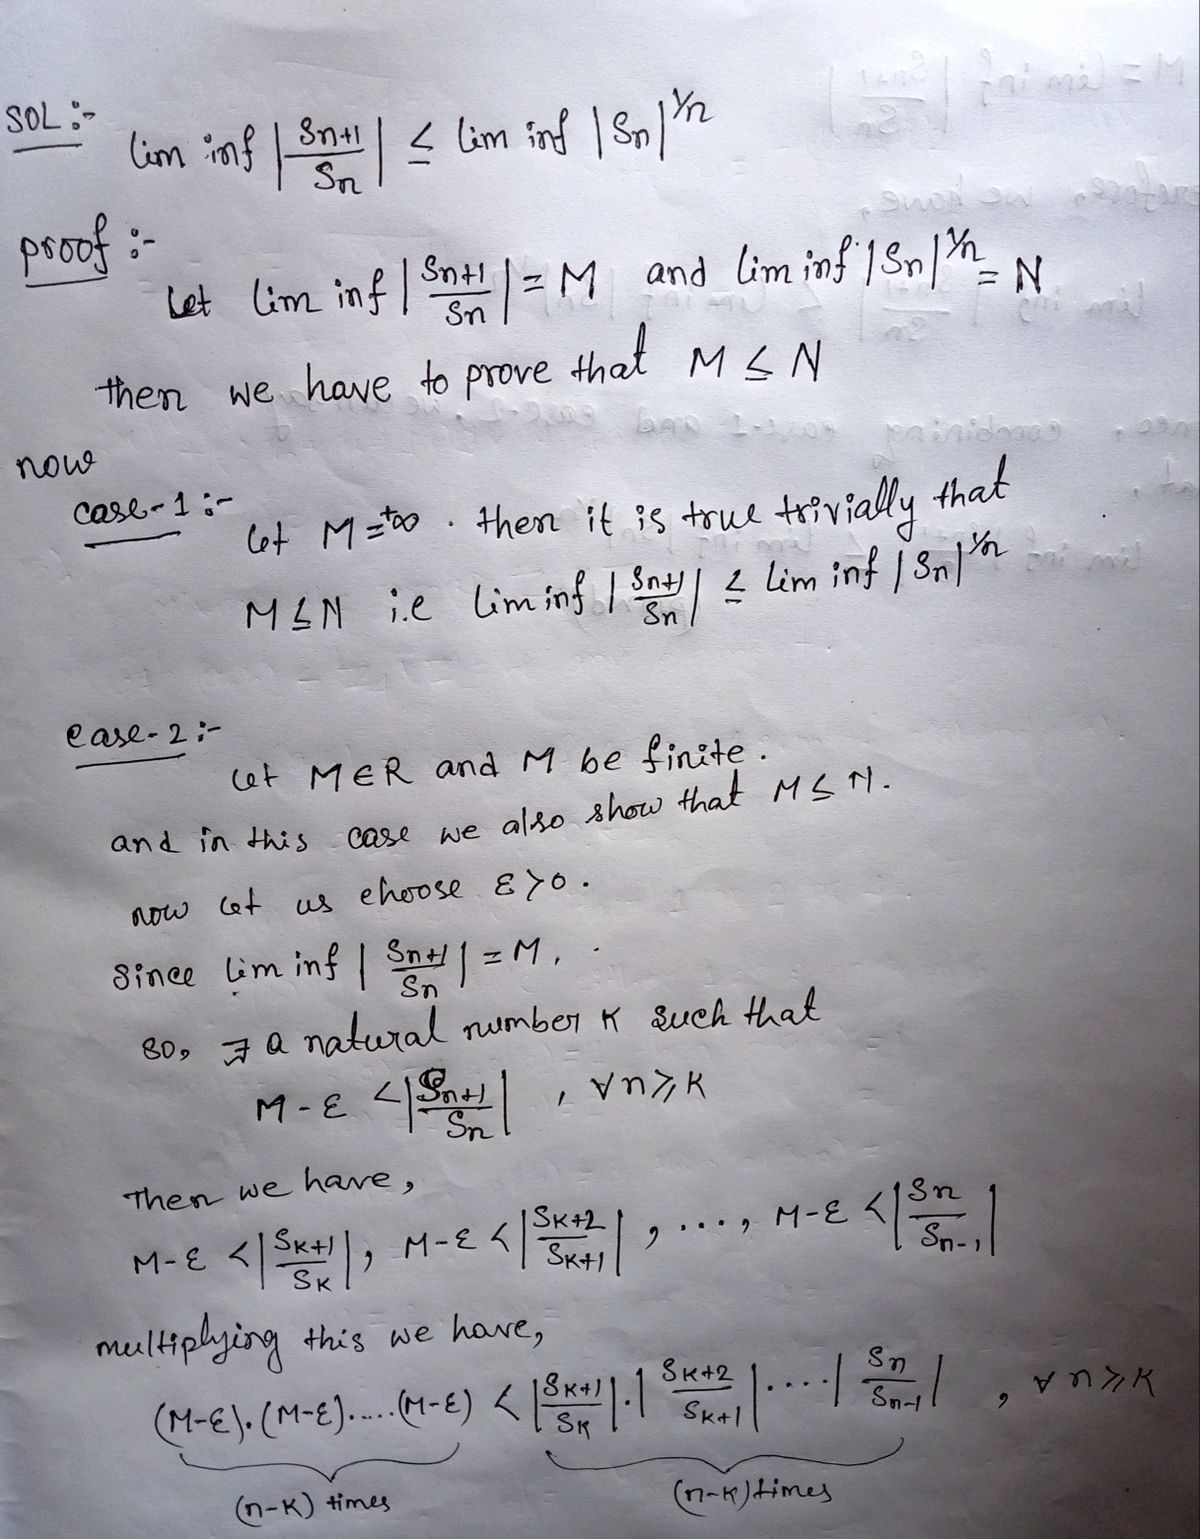 SOL :-
lim inf | Sn+1 / Sn | ≤ lim inf | Sn |^1/n
proof :-
Let lim inf | Sn+1 / Sn | = M and lim inf | Sn |^1/n = N
then we have to prove that M ≤ N
now
case-1 :-
let M = +∞ . then it is true trivially that
M ≤ N i.e lim inf | Sn+1 / Sn | ≤ lim inf | Sn |^1/n
case-2 :-
let M ∈ R and M be finite .
and in this case we also show that M ≤ N .
now let us choose ε > 0 .
since lim inf | Sn+1 / Sn | = M ,
so, ∃ a natural number K such that
M - ε < | Sn+1 / Sn | , ∀ n ≥ K
Then we have ,
M - ε < | SK+1 / SK | , M - ε < | SK+2 / SK+1 | , . . . , M - ε < | Sn / Sn-1 |
multiplying this we have,
(M-ε) . (M-ε) . . . . . (M-ε) < | SK+1 / SK | . | SK+2 / SK+1 | . . . . | Sn / Sn-1 | , ∀ n ≥ K
(n-K) times (n-K) times